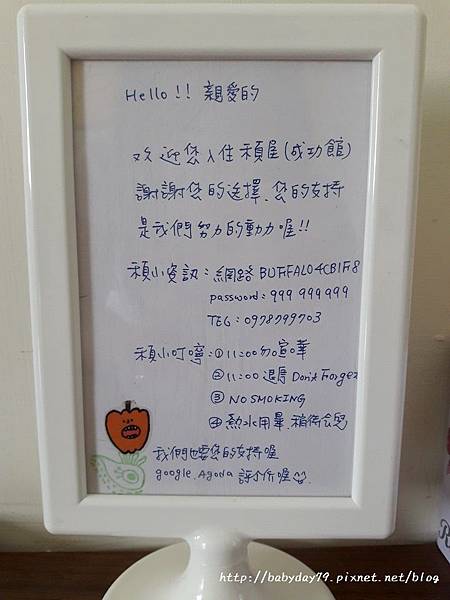 Hello!! 親愛的
欢迎您入住 禎屋(成功館)
謝謝您的選擇、您的支持
是我們努力的動力喔!!
禎小資訊：網路 BUFFALO4CB1F8
password：999 999 999
TEL：0978799703
禎小叮嚀：①11:00勿喧嘩
②11:00 退房 Don't Forget
③ NO SMOKING
④ 熱水用畢、稍待會兒
我們也要您的支持喔
google、Agoda 評個價喔
http://babyday79.pixnet.net/blog